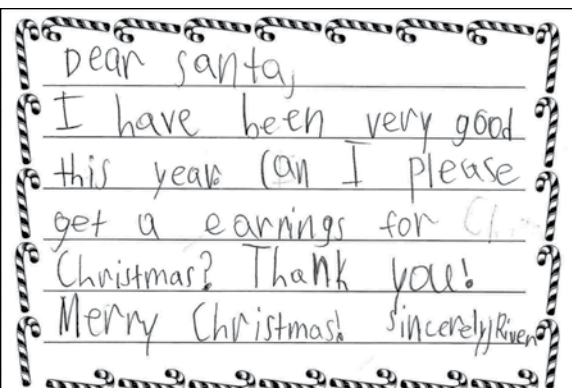 Dear santa,
I have been very good
this year. Can I please
get a earrings for
Christmas? Thank you!
Merry Christmas! Sincerely, River